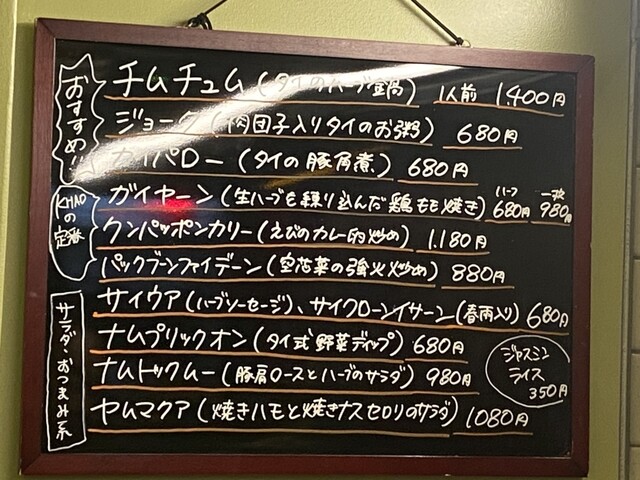 おすすめ!!
チムチュム(タイのハーブ鍋) 1人前 1.400円
ジョーク(肉団子入りタイのお粥) 680円
カイパロー(タイの豚角煮) 680円
KHAOの定番
ガイヤーン(生ハーブを練り込んだ鶏もも焼き) ハーフ 680円 一枚 980円
クンパッポンカリー(えびのカレー的炒め) 1.180円
パックブーンファイデーン(空芯菜の強火炒め) 880円
サラダ・おつまみ系
サイウア(ハーブソーセージ)、サイクローンイサーン(春雨入り) 680円
ナムプリックオン(タイ式野菜ディップ) 680円
ナムトックムー(豚肩ロースとハーブのサラダ) 980円
ヤムマクア(焼きハモと焼きナスセロリのサラダ) 1080円
ジャスミン
ライス
350円